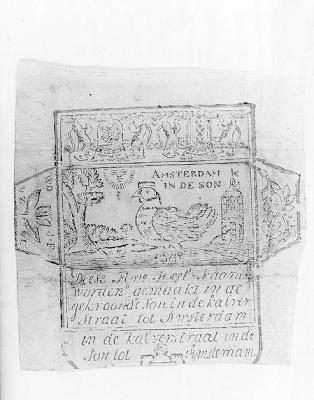 AMSTERDAM
IN DE SON
Dese Fyne Speel-kaarten
worden gemaakt in de
gekroonde Son in de kalver
Straat tot Amsterdam
in de kalverstraat in de
Son tot Amsterdam